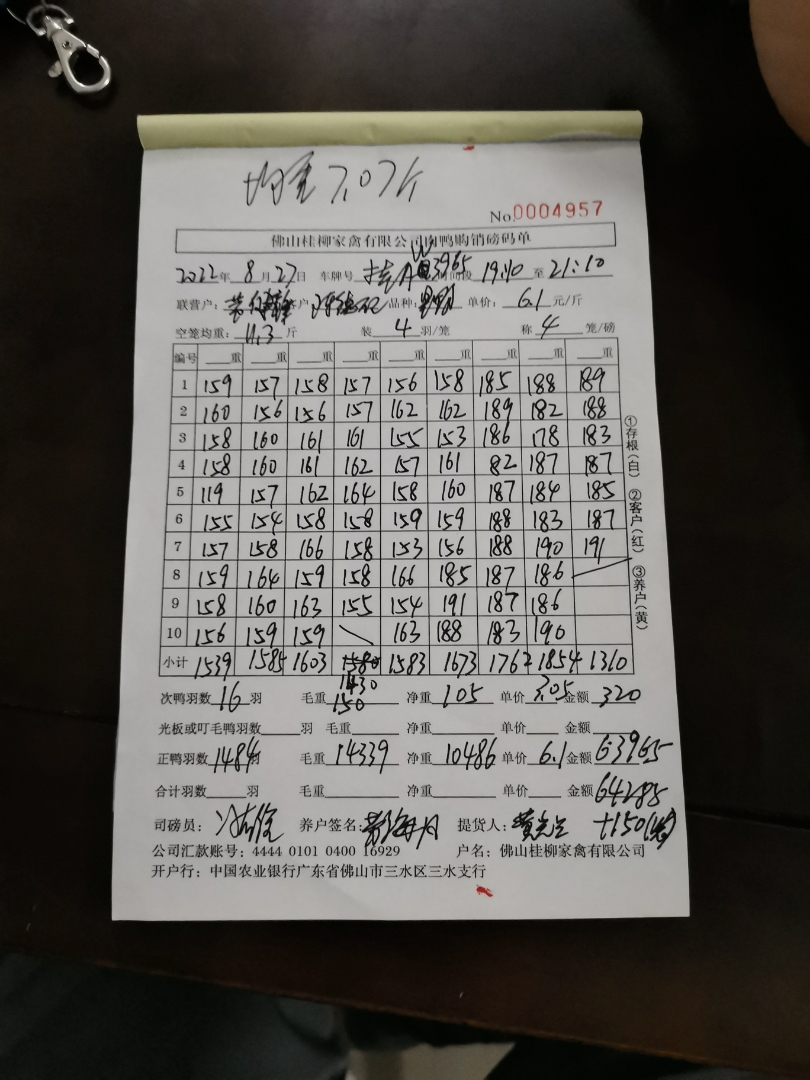 均重7.07斤
No.0004957
佛山桂柳家禽有限公司肉鸭购销磅码单
2022年 8月27日 车牌号 W 3965 时间段 19:40 至 21:10
联营户: 客户: 品种: 单价: 6.1 元/斤
空笼均重: 11.3 斤 装 4 羽/笼 称 4 笼/磅
编号 重 重 重 重 重 重 重 重 重
1 159 157 158 157 156 158 185 188 189
2 160 156 156 157 162 162 189 182 188
3 158 160 161 161 155 153 186 178 183
4 158 160 161 162 157 161 82 187 187
5 119 157 162 164 158 160 187 184 185
6 155 154 158 158 159 159 188 183 187
7 157 158 166 158 153 156 188 190 191
8 159 164 159 158 166 185 187 186
9 158 160 163 155 154 191 187 186
10 156 159 159 163 188 183 190
小计 1539 1585 1603 1580 1583 1673 1762 1854 1310
1430
次鸭羽数 16 羽 毛重 150 净重 105 单价 3.05 金额 320
光板或叮毛鸭羽数 羽 毛重 净重 单价 金额
正鸭羽数 1484 羽 毛重 14339 净重 10486 单价 6.1 金额 63965
合计羽数 羽 毛重 净重 单价 金额 64285
司磅员: 养户签名: 提货人: 黄先生 +150
公司汇款账号: 4444 0101 0400 16929 户名: 佛山桂柳家禽有限公司
开户行: 中国农业银行广东省佛山市三水区三水支行
①存根(白) ②客户(红) ③养户(黄)